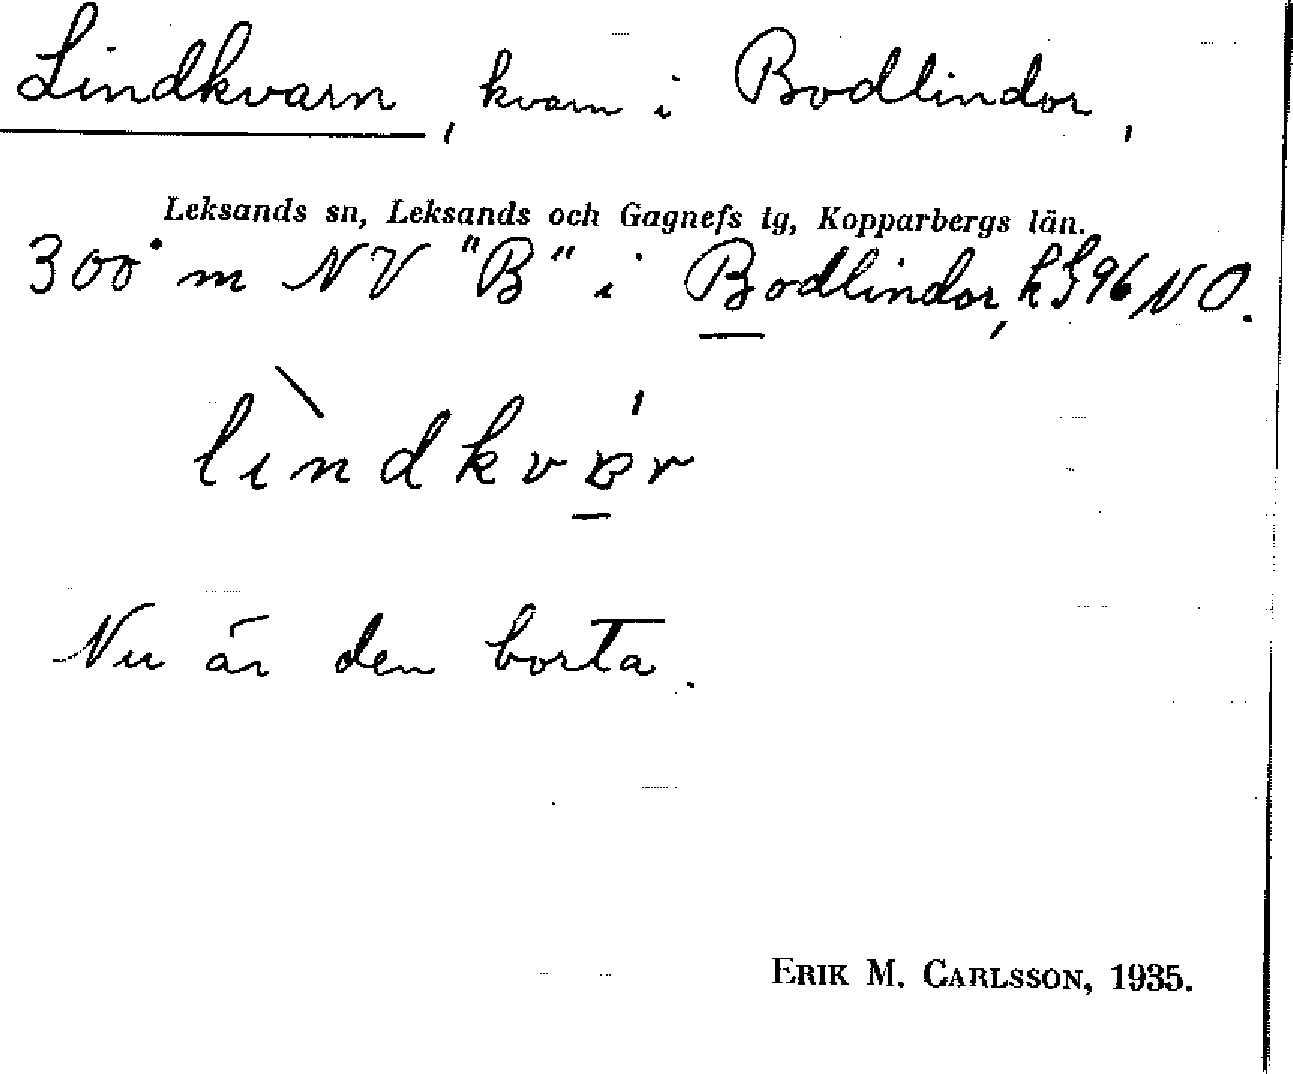 Lindkvarn, kvarn i Bodlindor,
Leksands sn, Leksands och Gagnefs tg, Kopparbergs län.
300 m NV "B" i Bodlindor, 96 NO.
Nu är den borta.
ERIK M. CARLSSON, 1935.